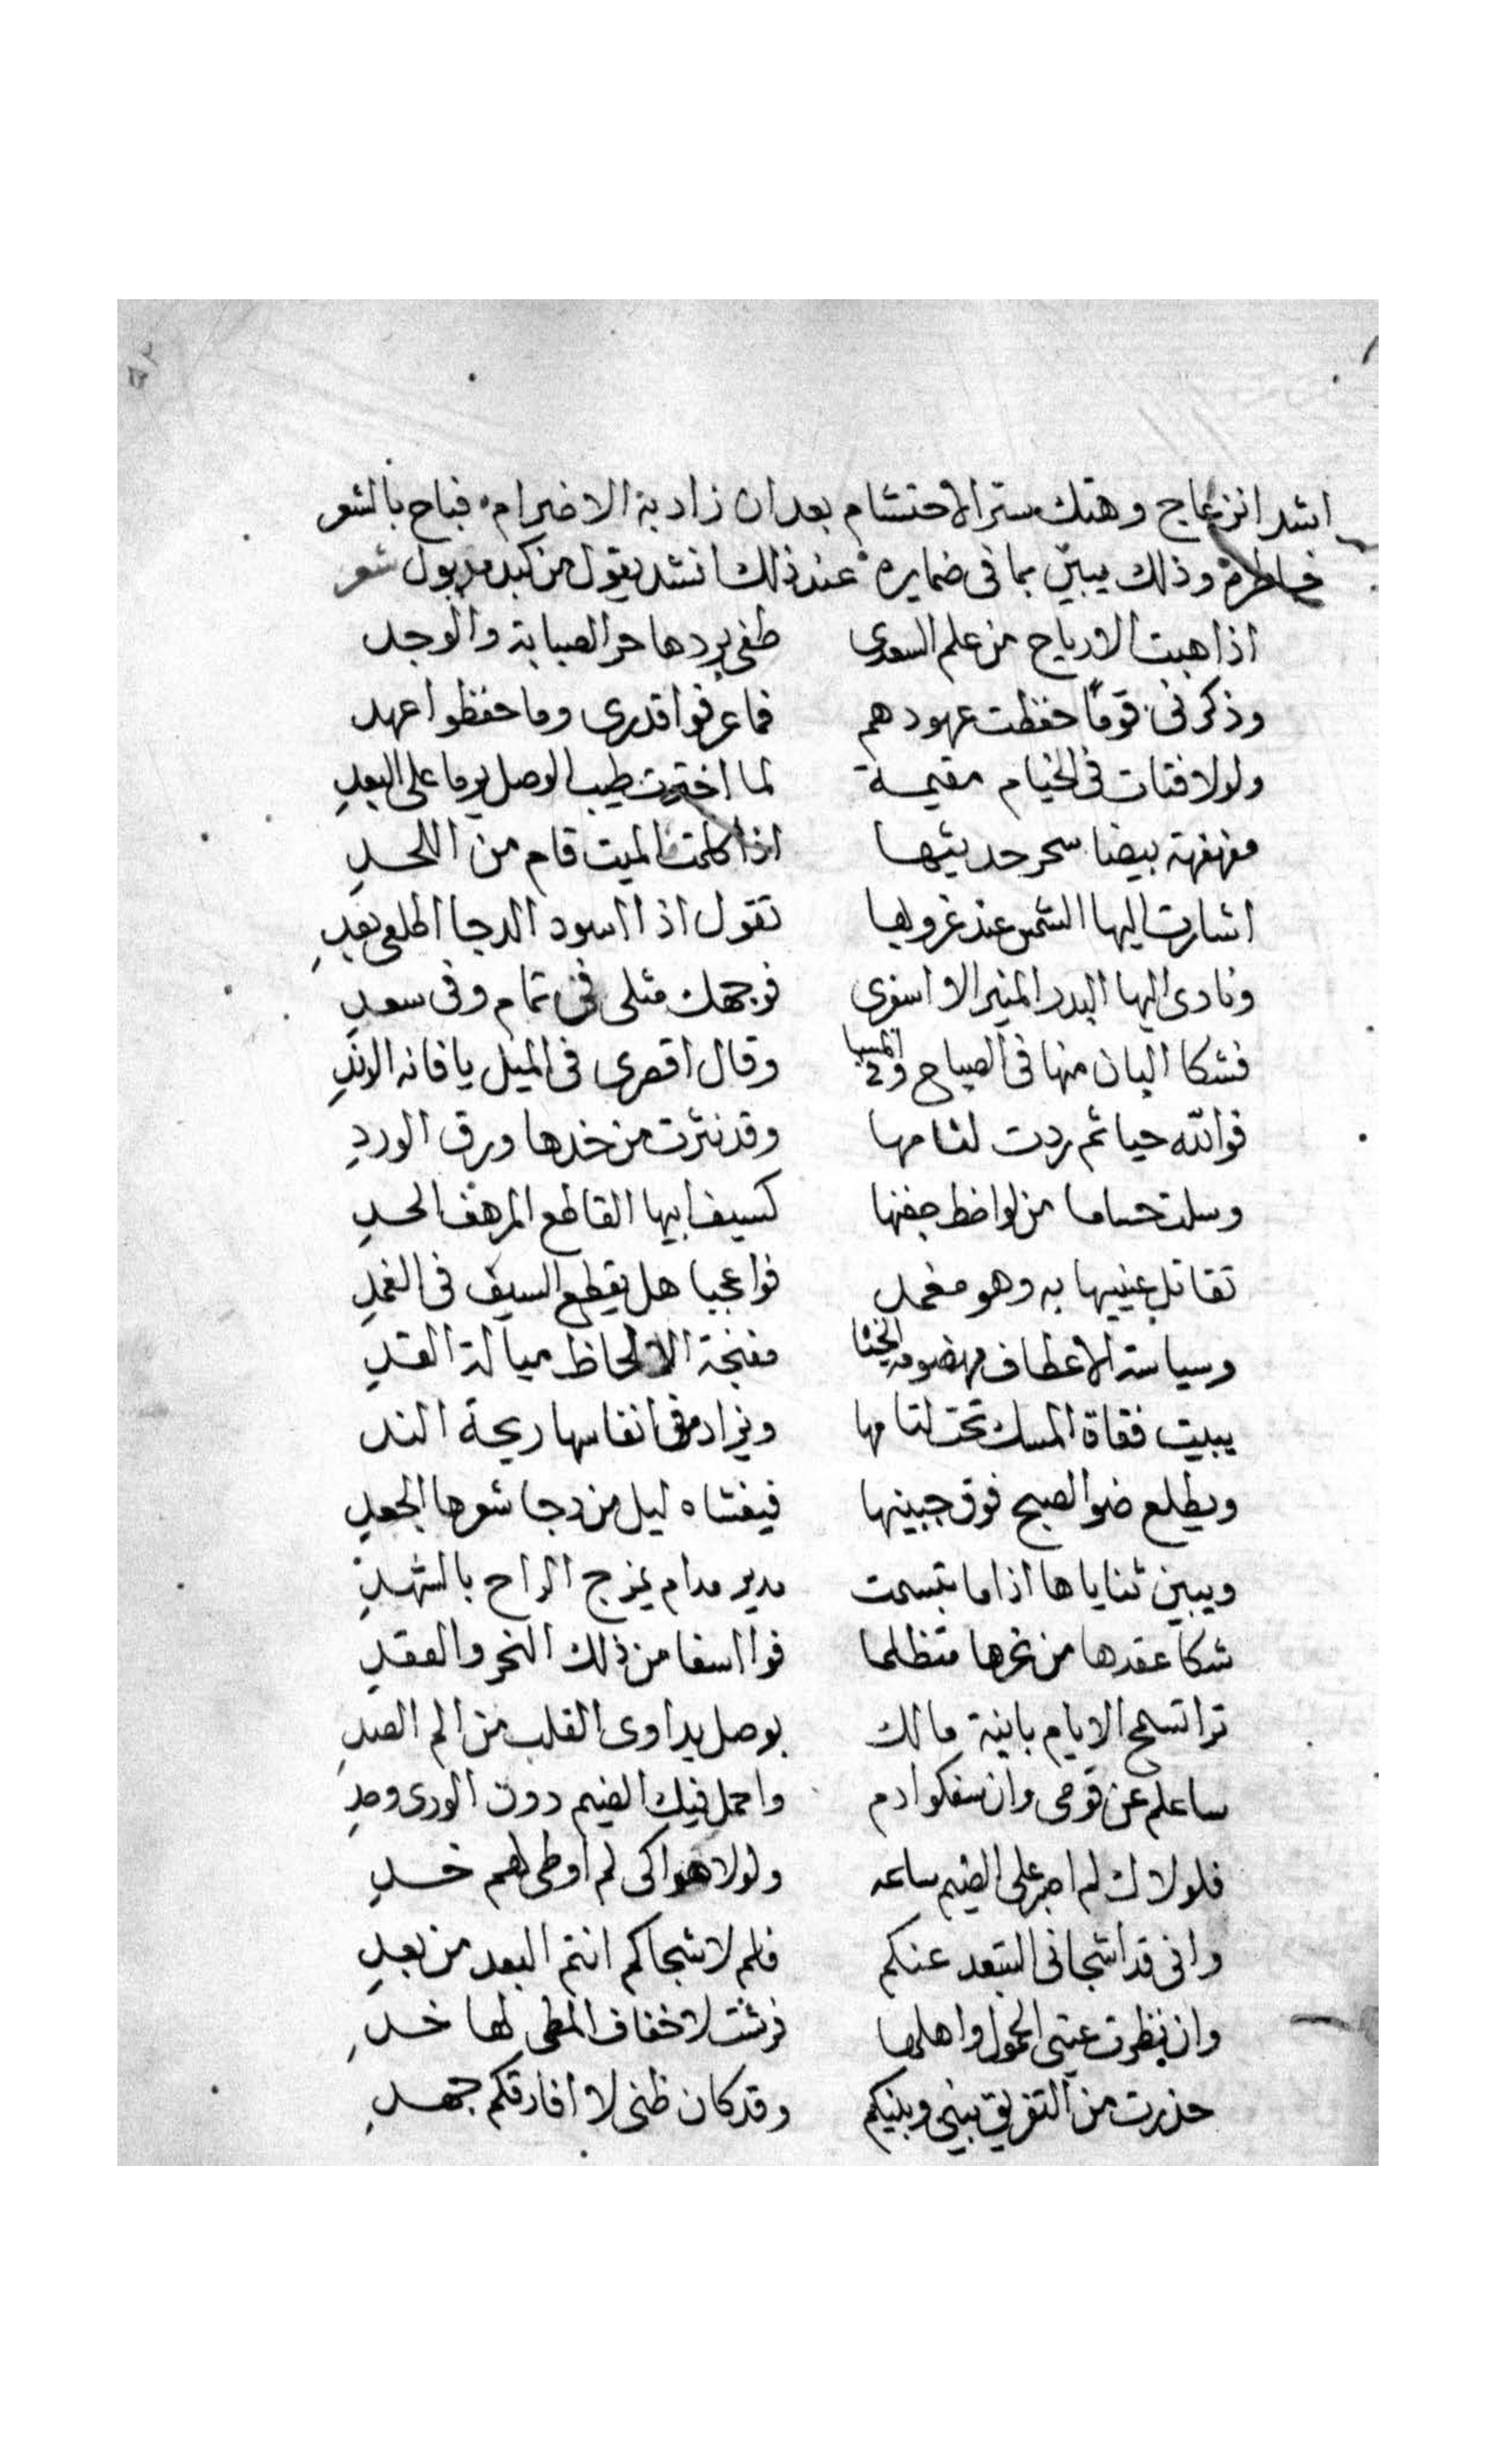 ٥٢
اشد انزعاج وهتك ستر الاحتشام بعد ان زاد به الاضرام فباح بالشعر
خاطره وذلك يبين بما فى ضمايره عند ذلك انشد يقول من كبد مدبول شعر
اذا هبت الارياح من علم السعدى طفى بردها حر الصبابة والوجد
وذكرنى قومًا حفظت عهودهم فما عرفوا قدرى وما حفظوا عهد
ولولا فتات فى الخيام مقيمة لما اخترت طيب الوصل يوما على البعدِ
مفهفهة بيضا سحر حديثها اذا كلمت الميت قام من اللحدِ
اشارت اليها الشمس عند غروبها تقول اذا اسود الدجا اطلعى بعدِ
ونادى اليها البدر المنير الا اسفرى فوجهك مثلى فى تمام وفى سعدِ
فشكا البان منها فى الصباح وفى المسا وقال اقصرى فى الميل يا فانه الرندِ
فوالله حيا ثم ردت لثامها وقد نثرت من خدها ورق الوردِ
وسلت حساما من لواحظ جفنها كسيف ابيها القاطع المرهف الحدِ
تقاتل عينيها به وهو مغمد فواعجبا هل يقطع السيف فى الغمدِ
وسياسة الاعطاف مهضومة الحشا مغنجة الالحاظ ميالة القدِ
يبيت فقاة المسك تحت لثامها ويزاد من انفاسها ريحة الند
ويطلع ضوا الصبح فوق جبينها فيغشاه ليل من دجا شعرها الجعدِ
ويبين ثناياها اذا ما بتسمت مدير مدام يمزج الراح بالشهدِ
شكا عقدها من نحرها متظلما فوا اسفا من ذلك النحر والعقدِ
ترا تسمح الايام بابنية مالك بوصل يداوى القلب من الم الصدِ
ساعلم عن قومى وان سفكوا دم واحمل فيك الضيم دون الورى وحدِ
فلولاك لم اصبر على الضيم ساعه ولولا هواكى لم اوطى لهم خدِ
وانى قد اشجانى التبعد عنكم فلم لا شجاكم انتم البعد من بعدِ
وان نظرت عينى الحمول واهلها فرشت لاخفاف المطى لها خدِ
حذرت من التفريق بينى وبينكم وقد كان ظنى لا افارقكم جهدِ